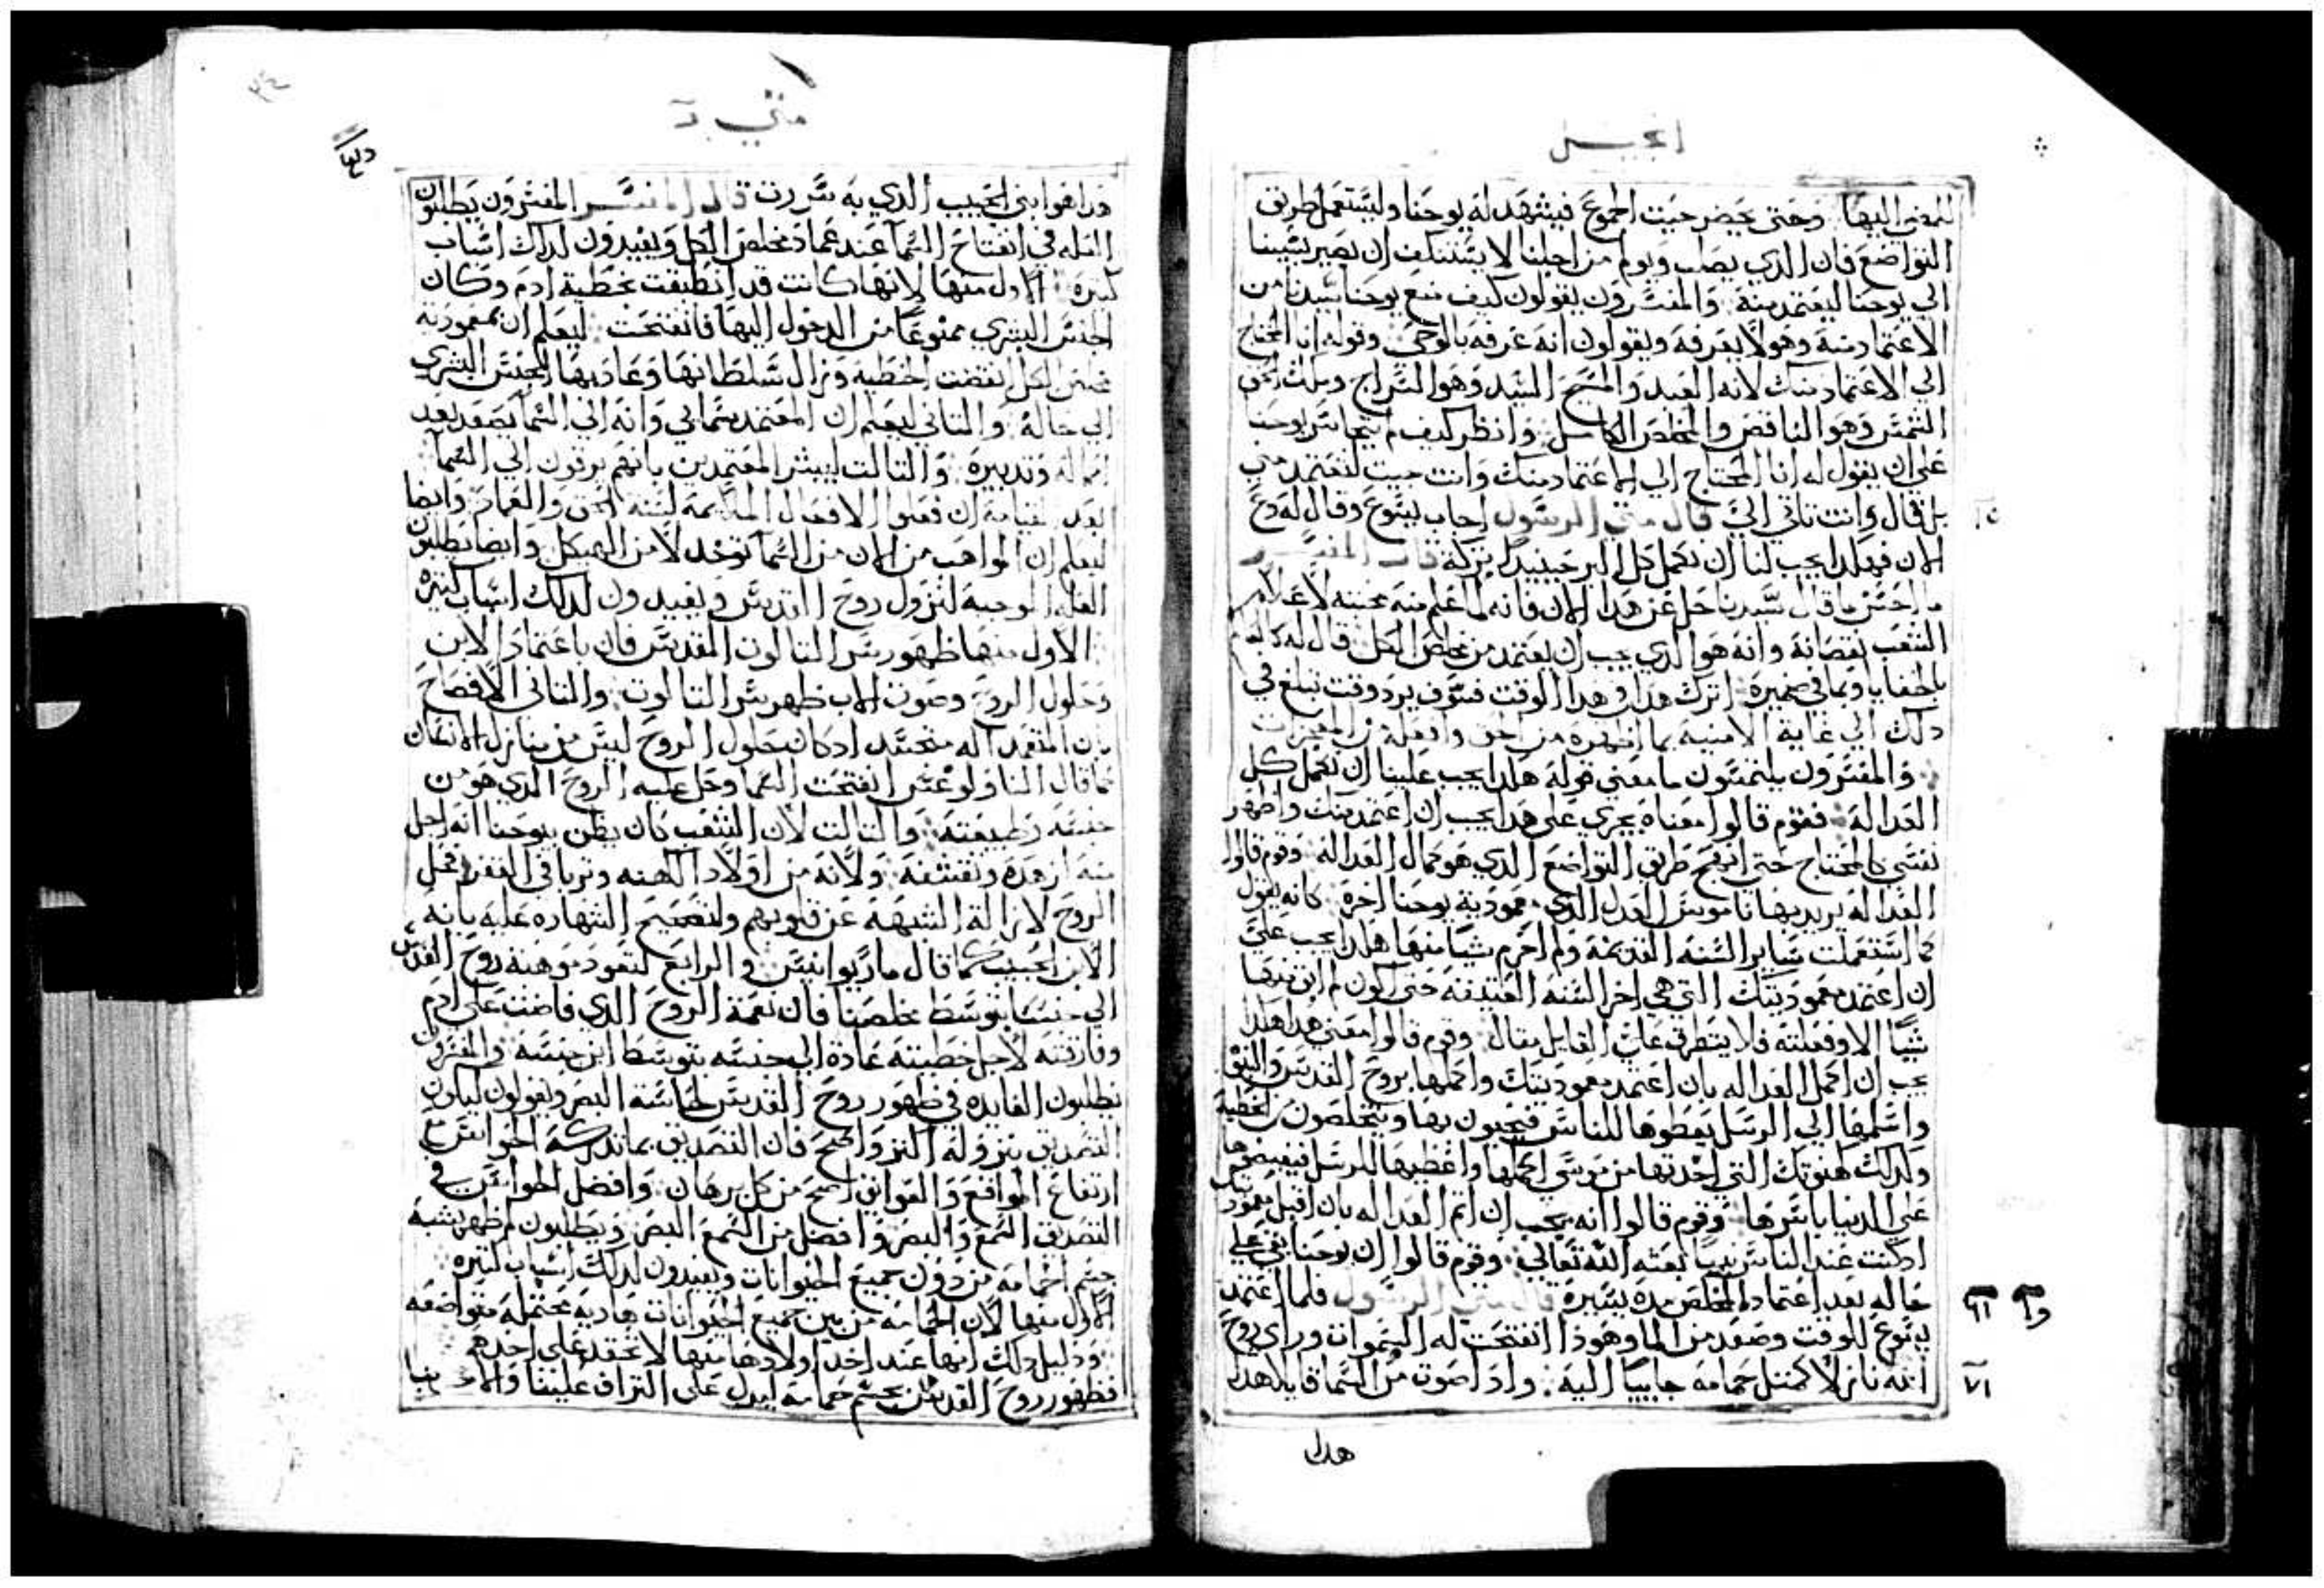 انجيل
للمضي اليها. وحتى يحضر حيث الجموع فيشهد له يوحنا وليستعمل طريق
التواضع فان الذي يصلب ويولم من اجلنا لا يستنكف ان يصير بسببنا
الي يوحنا ليعتمد منه والمفسرون يقولون كيف منع يوحنا سيدنا من
الاعتماد منه وهو لا يعرفه ويقولون انه عرفه بالوحي وقوله انا المحتاج
الي الاعتماد منك لانه العبد والمسيح السيد وهو السراج
الشمس وهو الناقص والمخلص الكامل وانظر كيف لم يتجاسر يوحنا
علي ان يقول له انا المحتاج الي الاعتماد منك وانت جيت لتعتمد مني
بل قال وانت تاتي الي قال متي الرسول اجاب يسوع وقال له دع
الان فهكدا يجب لنا ان نكمل كل البر حينيد تركه قال المفسر
ما احسن ما قال سيدنا حل عن هدا الان فانه لما علم منه محبته لاعلام
الشعب نقصانه وانه هو الدي يجب ان يعتمد من مخلص الكل قال له كالعالم
بالخفايا وبما في ضميره اترك هدا في هدا الوقت فسوف يرد وقت تبلغ في
دلك الي غاية الامنية بما اظهره من الحق وافعله من المعجزات
والمفسرون يلتمسون ما معني قوله هكدا يجب علينا ان نكمل كل
العدالة فقوم قالوا معناه يجري علي هدا يجب ان اعتمد منك واظهر
نفسي كالمحتاج حتي انهج طريق التواضع الدي هو كمال العدالة وقوم قالوا
العدالة يريد بها ناموس العدل الدي معمودية يوحنا اخره كانه يقول
كما استعملت ساير السنة القديمة ولم اخرم شيا منها هكدا يجب علي
ان اعتمد معموديتك التي هي اخر السنة العتيقة حتي اكون لم ابق منها
شيا الا وفعلته فلا يتطرق علي القايل مقال وقوم قالوا معني هدا هكدا
يجب ان اكمل العداله بان اعتمد معموديتك واكملها بروح القدس والبنوة
واسلمها الي الرسل يعطوها للناس فيحيون بها ويتخلصون من الخطية
وكدلك كهنوتك التي اخدتها من موسي اكملها واعطيها للرسل فيفيضوها
علي الدنيا باسرها وقوم قالوا انه يجب ان اتم العداله بان اقبل معموديتك
اد كنت عند الناس نبيا بعثه الله تعالي وقوم قالوا ان يوحنا بقي علي
حاله بعد اعتماد المخلص مدة يسيرة قال متي الرسول فلما اعتمد
يسوع للوقت وصعد من الما وهودا انفتحت له السموات وراي روح
الله نازلا كمثل حمامه جاييا اليه وادا صوت من السما قايلا هدا
هدا
متي
هدا هو ابني الحبيب الدي به سررت قال المفسر المفسرون يطلبون
العله في انفتاح السما عند عماد مخلص الكل ويفيدون لدلك اسباب
كثيرة الاول منها لانها كانت قد انطبقت بخطية ادم وكان
الجنس البشري ممنوعا من الدخول اليها فانفتحت ليعلم ان بمعمودية
مخلص الكل انقضت الخطيه وزال سلطانها وعاد بها الجنس البشري
الي حاله والثاني ليعلم ان المعتمد سمائي وانه الي السما يصعد بعد
كماله وتدبيره والثالث ليبشر المعتمدين بانهم يرقون الي السما
بعد القيامة ان فعلوا الافعال الملائمة لسنة الحق والعماد وايضا
ليعلم ان المواهب من الان من السما توخد لا من الهيكل وايضا يطلبون
العله الموجبة لنزول روح القدس ويفيدون لدلك اسباب كثيره
الاول منها ظهور سر الثالوث المقدس فان باعتماد الابن
وحلول الروح وصوت الاب ظهر سر الثالوث والثاني الافصاح
بان المتعمد اله متجسد اد كان حلول الروح ليس من منازل الانسان
كما قال الناولوغس انفتحت السما وحل عليه الروح الدي هو من
جنسه وطبيعته والثالث لان الشعب كان يظن بيوحنا انه اجل
منه لزهده وتقشفه ولانه من اولاد الكهنه وتربا في القفر فحل
الروح لازالة الشبهة عن قلوبهم ولتصحيح الشهاده عليه بانه
الابن الحبيب كما قال ماريوانيس والرابع لتعود موهبة روح القدس
الي جنسنا بتوسط مخلصنا فان نعمة الروح الدي فاضت علي ادم
وفارقته لاجل خطيته عادة الي جنسه بتوسط ابن جنسه والمفسرون
يطلبون الفايده في ظهور روح القدس لحاسة البصر ويقولون ليكون
التصديق بنزوله النز واصح فان التصديق بما تدركه الحواس مع
ارتفاع الموانع والعوايق اصح من كل برهان وافضل الحواس في
التصديق السمع والبصر وافضل من السمع البصر ويطلبون لم ظهر بشبه
جسم الحمامه من دون جميع الحيوانات ويفيدون لدلك اسباب كثيره
الاول منها لان الحمامه من بين جميع الحيوانات هاديه محتملة متواضعه
ودليل دلك انها عند اخد اولادها منها لا تحقد علي اخدهم
فظهور روح القدس بجسم حمامة ليدل علي التراف علينا